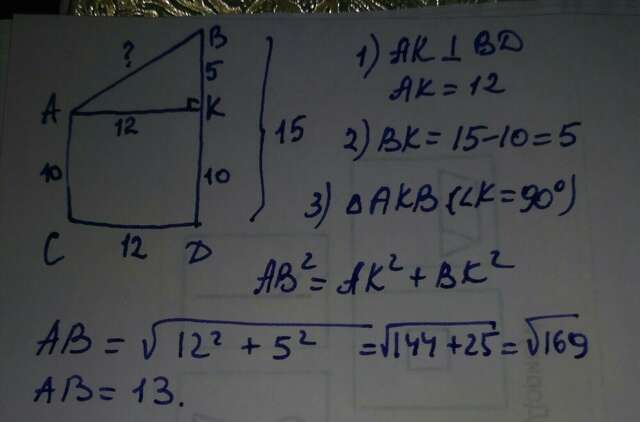 B
?
5
A
K
12
15
10
10
C
12
D
1) AK ⊥ BD
AK = 12
2) BK = 15-10 = 5
3) △AKB (∠K=90°)
AB² = AK² + BK²
AB = √12² + 5² = √144+25 = √169
AB = 13.